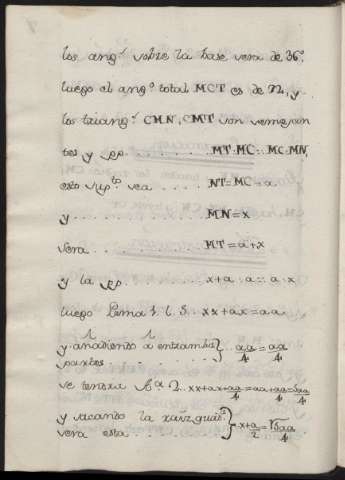 los ang.ˢ sobre la base sera de 36º,
luego el ang.º total MCT es de 72, y
los triang.ˢ CMN, CMT son semejan
tes y pp. ........ MT·MC::MC·MN,
esto sup.ᵗᵒ sea ..... NT=MC=a
y ......... MN=x
sera ........ MT=a+x
y la pp. ....... x+a:a::a·x
luego Lema 1 l. S. xx+ax=aa
y anadiendo a entrambas } aa/4=aa/4
partes ........
se tendra 2. xx+ax+aa/4=aa+aa/4=5aa/4
y sacando la raiz quad.ᵃ } x+a/2=√5aa/4
sera esta ........